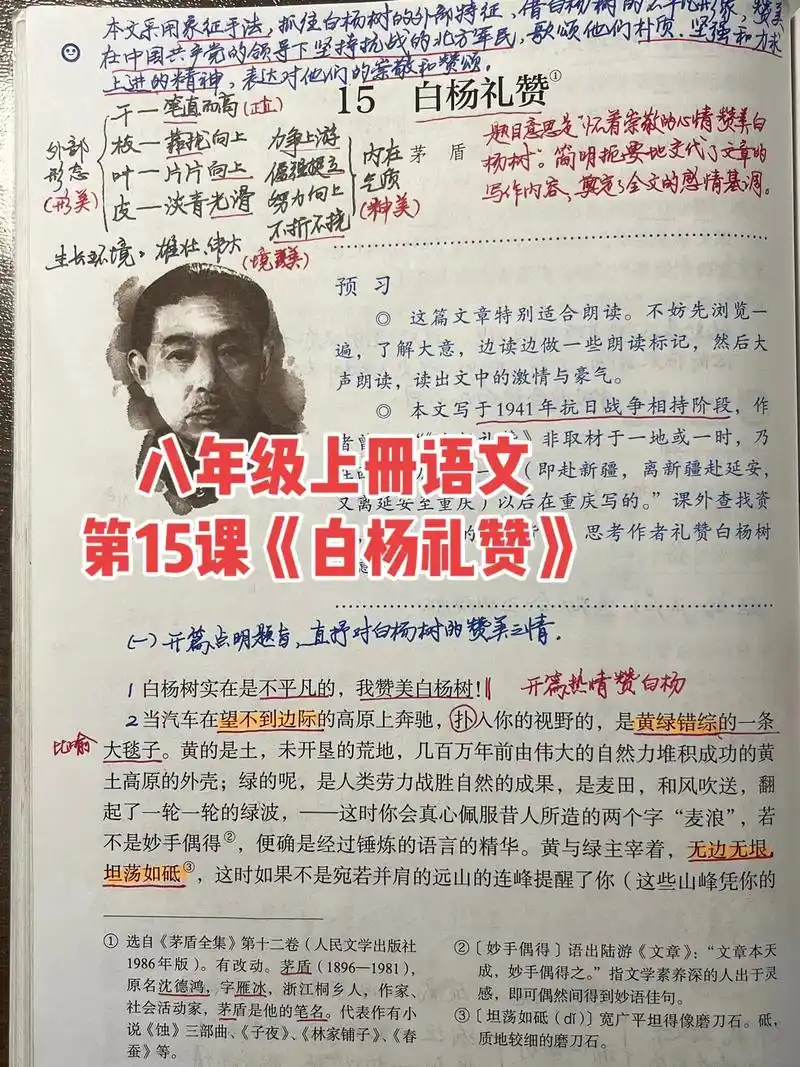 本文采用象征手法，抓住白杨树的外部特征，借白杨树的不平凡形象，赞美
在中国共产党的领导下坚持抗战的北方军民，歌颂他们朴质、坚强和力求
上进的精神，表达对他们的崇敬和赞颂。
15 白杨礼赞①
茅 盾
外部形态（形美）
干一笔直而高（正直）
枝一靠拢向上 力争上游
叶一片片向上 倔强挺立
皮一淡青光滑 努力向上
不折不挠
内在气质（神美）
生长环境：雄壮、伟大（境美）
题目意思是“怀着崇敬的心情赞美白
杨树”。简明扼要地交代了文章的
写作内容，奠定了全文的感情基调。
预 习
◎ 这篇文章特别适合朗读。不妨先浏览一
遍，了解大意，边读边做一些朗读标记，然后大
声朗读，读出文中的激情与豪气。
◎ 本文写于1941年抗日战争相持阶段，作
非取材于一地或一时，乃
（即赴新疆，离新疆赴延安，
又离延安至重庆）以后在重庆写的。”课外查找资
思考作者礼赞白杨树
八年级上册语文
第15课《白杨礼赞》
(一) 开篇点明题旨，直抒对白杨树的赞美之情.
1 白杨树实在是不平凡的，我赞美白杨树！ 开篇热情赞白杨
2 当汽车在望不到边际的高原上奔驰，扑入你的视野的，是黄绿错综的一条
比喻 大毯子。黄的是土，未开垦的荒地，几百万年前由伟大的自然力堆积成功的黄
土高原的外壳；绿的呢，是人类劳力战胜自然的成果，是麦田，和风吹送，翻
起了一轮一轮的绿波，——这时你会真心佩服昔人所造的两个字“麦浪”，若
不是妙手偶得②，便确是经过锤炼的语言的精华。黄与绿主宰着，无边无垠，
坦荡如砥③，这时如果不是宛若并肩的远山的连峰提醒了你（这些山峰凭你的
① 选自《茅盾全集》第十二卷（人民文学出版社
1986年版）。有改动。茅盾（1896—1981），
原名沈德鸿，字雁冰，浙江桐乡人，作家、
社会活动家，茅盾是他的笔名。代表作有小
说《蚀》三部曲、《子夜》、《林家铺子》、《春
蚕》等。
②〔妙手偶得〕语出陆游《文章》：“文章本天
成，妙手偶得之。”指文学素养深的人出于灵
感，即可偶然间得到妙语佳句。
③〔坦荡如砥（dǐ）〕宽广平坦得像磨刀石。砥，
质地较细的磨刀石。